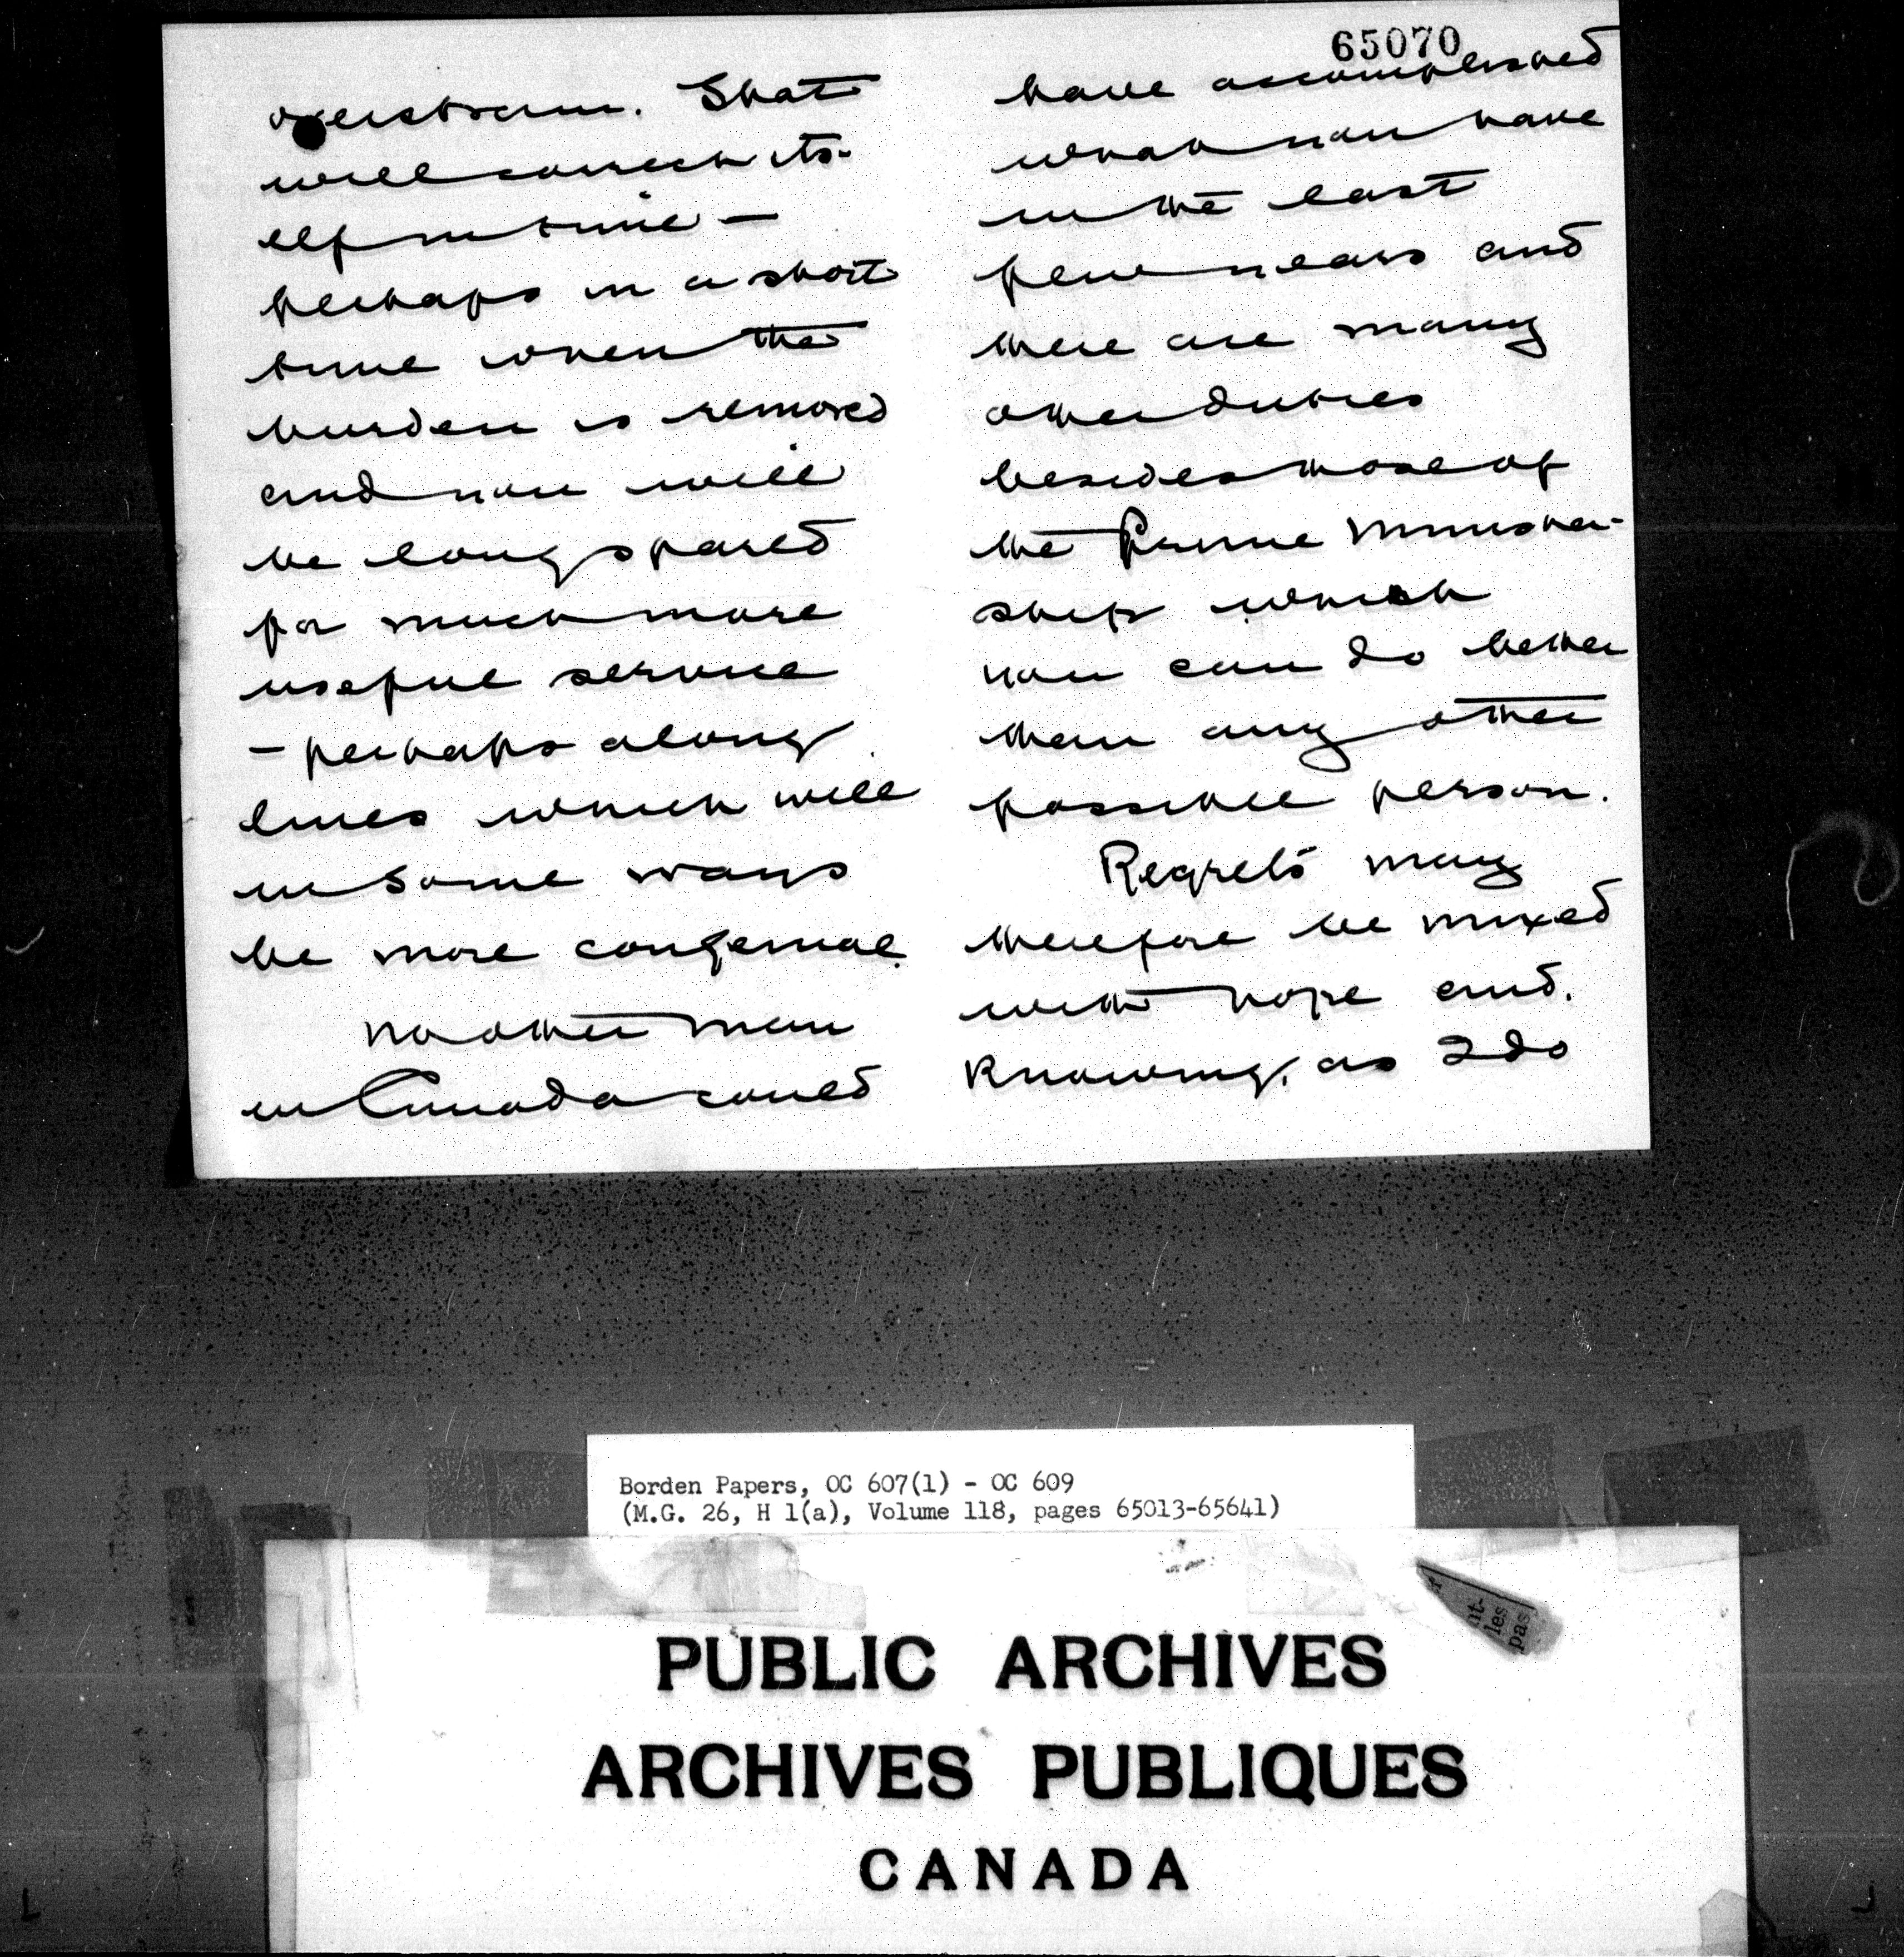 overstrain. That
will correct its-
elf in time —
perhaps in a short
time when the
burden is removed
and you will
be long spared
for much more
useful service
- perhaps along
lines which will
in some ways
be more congenial.
No other man
in Canada could
65070
have accomplished
what you have
in the last
few years and
there are many
other duties
besides those of
the Prime Minister-
ship which
you can do better
than any other
possible person.
Regrets may
therefore be mixed
with hope and,
knowing, as I do
Borden Papers, OC 607(1) - OC 609
(M.G. 26, H 1(a), Volume 118, pages 65013-65641)
nt-
les
pas
PUBLIC ARCHIVES
ARCHIVES PUBLIQUES
CANADA